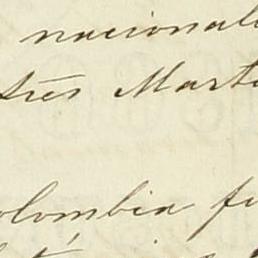 nacional
tres Mart
olombia fu